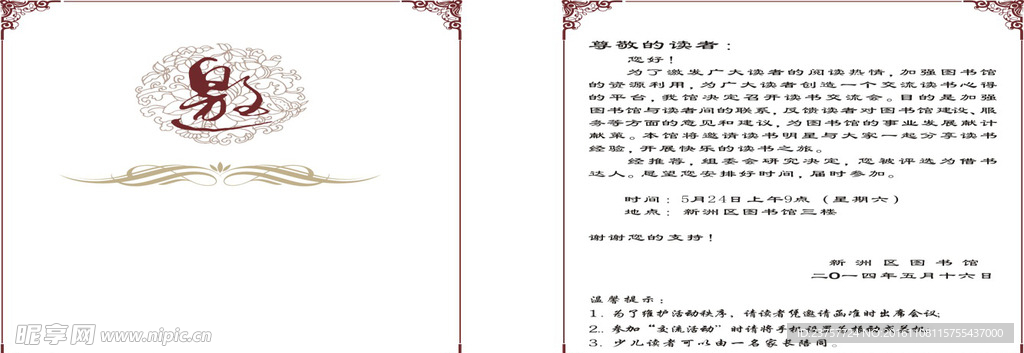 邀
尊敬的读者：
您好！
为了激发广大读者的阅读热情，加强图书馆
的资源利用，为广大读者创造一个交流读书心得
的平台，我馆决定召开读书交流会。目的是加强
图书馆与读者间的联系，反馈读者对图书馆建设、服
务等方面的意见和建议，为图书馆的事业发展献计
献策。本馆将邀请读书明星与大家一起分享读书
经验，开展快乐的读书之旅。
经推荐，组委会研究决定，您被评选为借书
达人。恳望您安排好时间，届时参加。
时间：5月24日上午9点（星期六）
地点：新洲区图书馆三楼
谢谢您的支持！
新洲区图书馆
二〇一四年五月十六日
温馨提示：
1. 为了维护活动秩序，请读者凭邀请函准时出席会议；
2. 参加“交流活动”时请将手机设置
3. 少儿读者可以由一名家长陪同。
昵享网 www.nipic.cn
NO:20161108115755437000